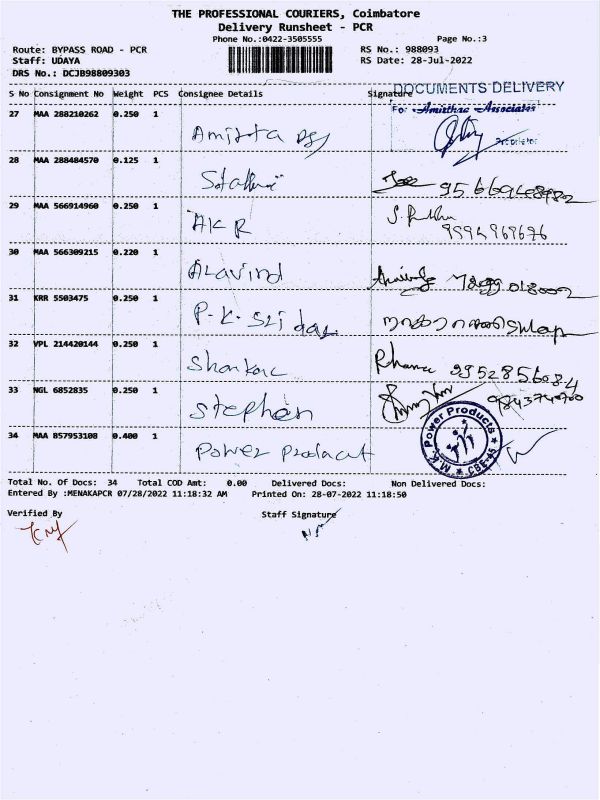 THE PROFESSIONAL COURIERS, Coimbatore
Delivery Runsheet - PCR
Phone No.:0422-3505555
Page No.:3
Route: BYPASS ROAD - PCR
RS No.: 988093
Staff: UDAYA
RS Date: 28-Jul-2022
DRS No.: DCJB98809303
DOCUMENTS DELIVERY
S No Consignment No Weight PCS Consignee Details Signature
For Amirthaa Associates
27 MAA 288210262 0.250 1 Amirta
Proprietor
28 MAA 288484570 0.125 1
29 MAA 566914960 0.250 1 AKR
9994969696
30 MAA 566309215 0.220 1 Aravind
31 KRR 5503475 0.250 1 P.K. Sridar
32 VPL 214420144 0.250 1 Shankar
9952856084
33 NGL 6852835 0.250 1 Stephen
9843740700
34 MAA 857953108 0.400 1 Power Product
M.K.M Power Products ★ CBE-45 ★
Total No. Of Docs: 34 Total COD Amt: 0.00 Delivered Docs: Non Delivered Docs:
Entered By :MENAKAPCR 07/28/2022 11:18:32 AM Printed On: 28-07-2022 11:18:50
Verified By Staff Signature